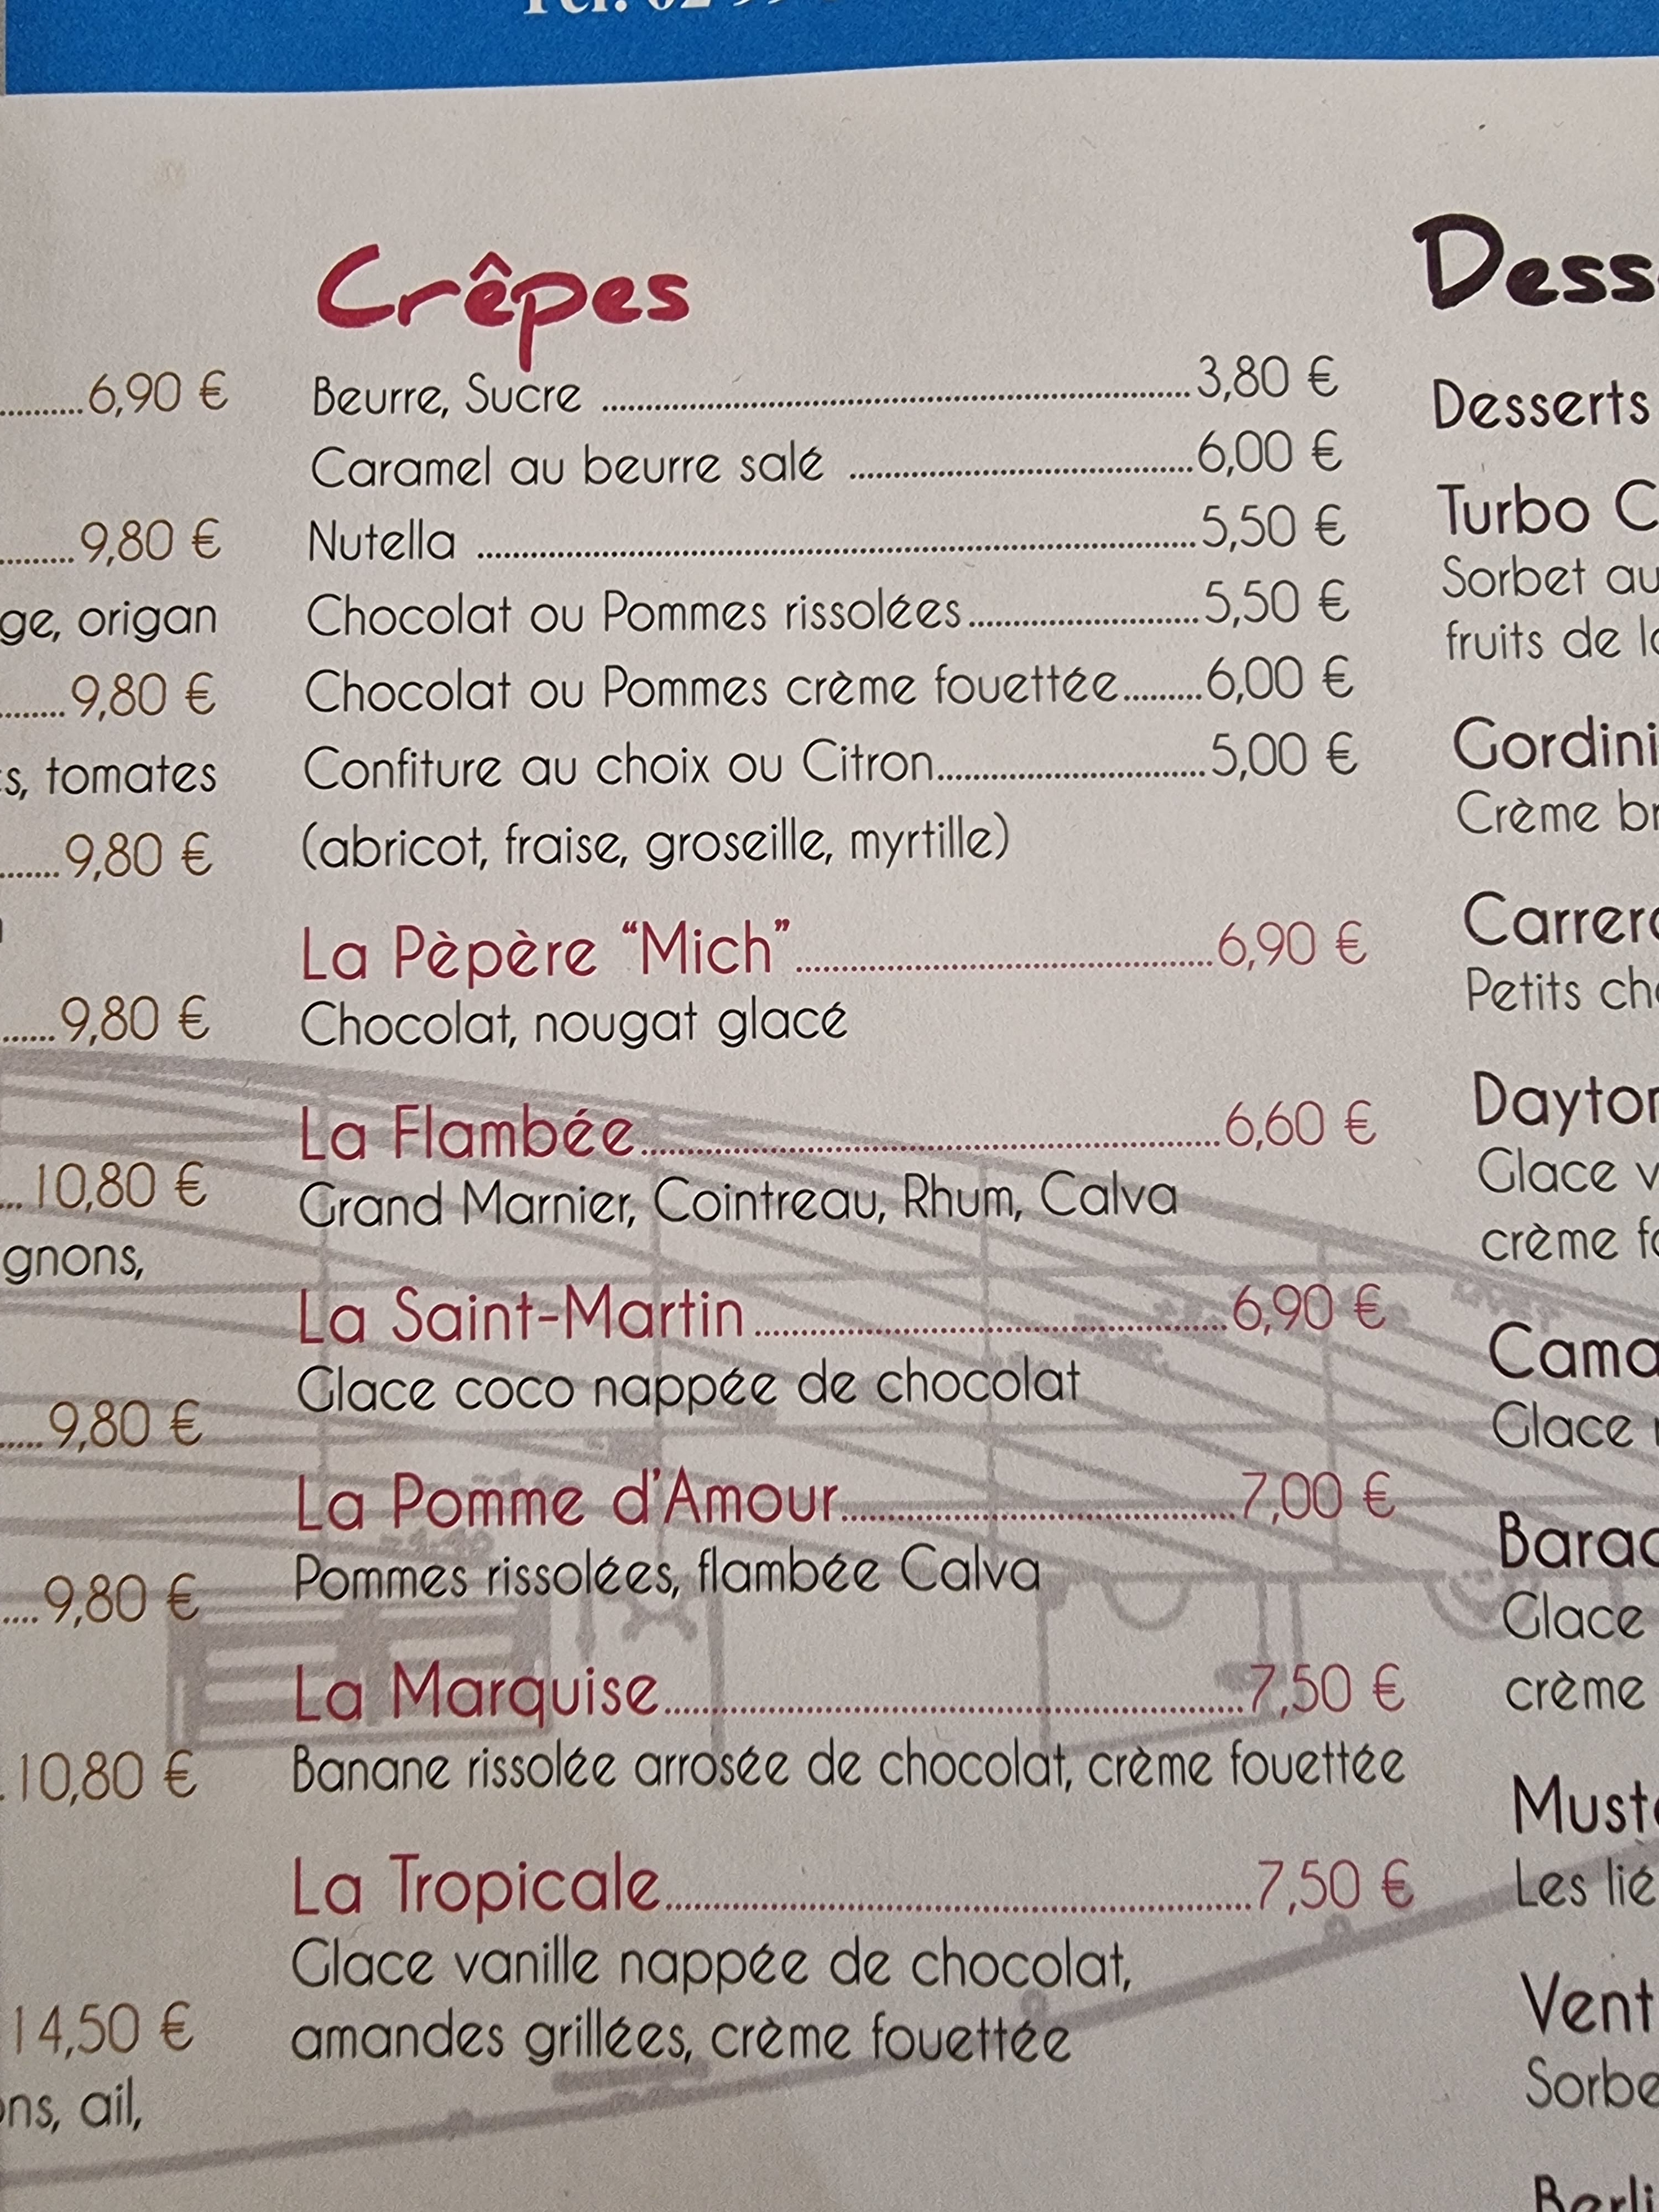 6,90 €
9,80 €
origan
9,80 €
tomates
9,80 €
9,80 €
10,80 €
9,80 €
9,80 €
10,80 €
14,50 €
ail,
Crêpes
Beurre, Sucre ........ 3,80 €
Caramel au beurre salé ........ 6,00 €
Nutella ........ 5,50 €
Chocolat ou Pommes rissolées ........ 5,50 €
Chocolat ou Pommes crème fouettée ........ 6,00 €
Confiture au choix ou Citron ........ 5,00 €
(abricot, fraise, groseille, myrtille)
La Pèpère “Mich” ........ 6,90 €
Chocolat, nougat glacé
La Flambée ........ 6,60 €
Grand Marnier, Cointreau, Rhum, Calva
La Saint-Martin ........ 6,90 €
Glace coco nappée de chocolat
La Pomme d’Amour ........ 7,00 €
Pommes rissolées, flambée Calva
La Marquise ........ 7,50 €
Banane rissolée arrosée de chocolat, crème fouettée
La Tropicale ........ 7,50 €
Glace vanille nappée de chocolat,
amandes grillées, crème fouettée
Desserts
Turbo
Sorbet
fruits de
Gordini
Crème
Petits
Glace
crème
Glace
Glace
crème
Les